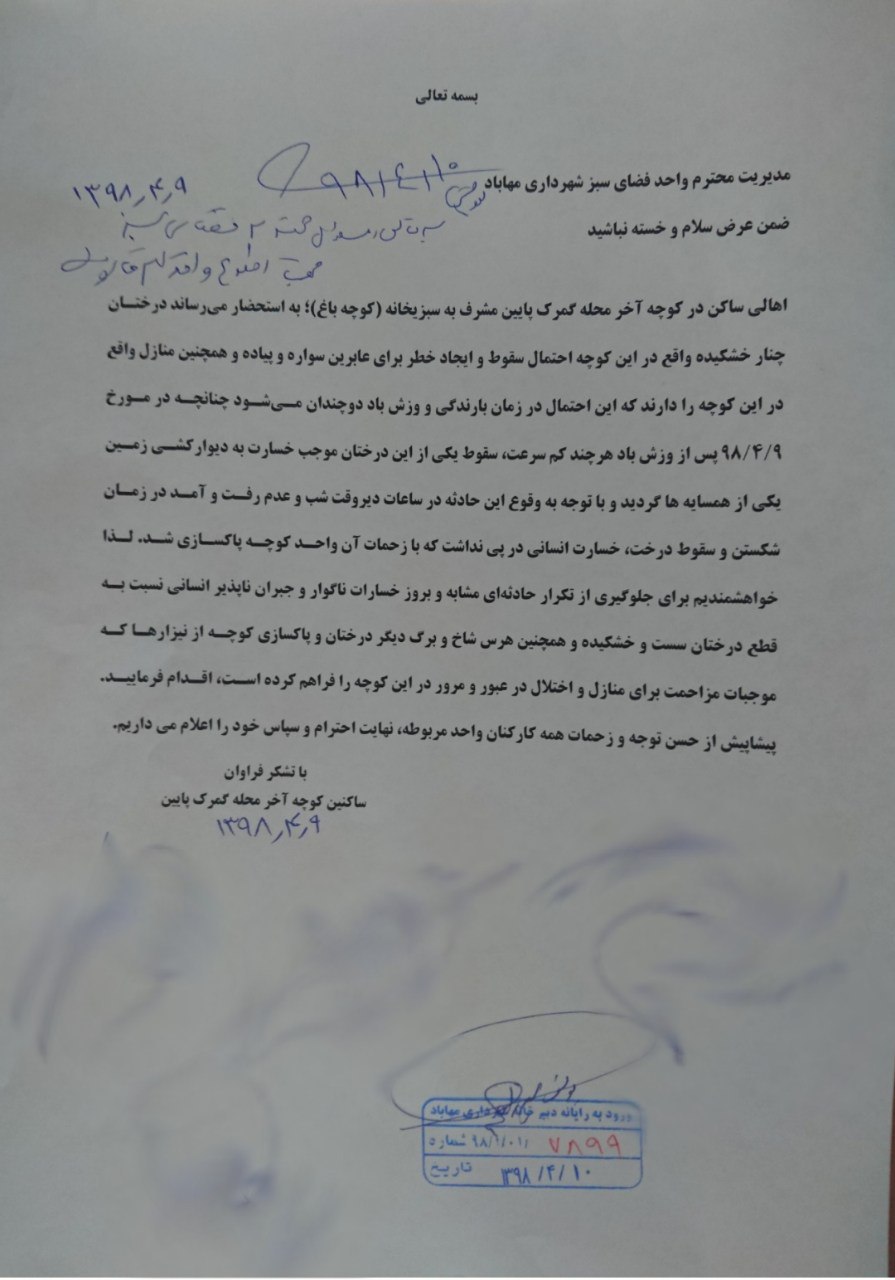 بسمه تعالی
مدیریت محترم واحد فضای سبز شهرداری مهاباد
۹۸/۴/۱۰
۱۳۹۸/۴/۹
ضمن عرض سلام و خسته نباشید
جهت اطلاع و اقدام
اهالی ساکن در کوچه آخر محله گمرک پایین مشرف به سبزیخانه (کوچه باغ)؛ به استحضار می‌رساند درختان
چنار خشکیده واقع در این کوچه احتمال سقوط و ایجاد خطر برای عابرین سواره و پیاده و همچنین منازل واقع
در این کوچه را دارند که این احتمال در زمان بارندگی و وزش باد دوچندان می‌شود چنانچه در مورخ
۹۸/۴/۹ پس از وزش باد هرچند کم سرعت، سقوط یکی از این درختان موجب خسارت به دیوارکشی زمین
یکی از همسایه ها گردید و با توجه به وقوع این حادثه در ساعات دیروقت شب و عدم رفت و آمد در زمان
شکستن و سقوط درخت، خسارت انسانی در پی نداشت که با زحمات آن واحد کوچه پاکسازی شد. لذا
خواهشمندیم برای جلوگیری از تکرار حادثه‌ای مشابه و بروز خسارات ناگوار و جبران ناپذیر انسانی نسبت به
قطع درختان سست و خشکیده و همچنین هرس شاخ و برگ دیگر درختان و پاکسازی کوچه از نیزارها که
موجبات مزاحمت برای منازل و اختلال در عبور و مرور در این کوچه را فراهم کرده است، اقدام فرمایید.
پیشاپیش از حسن توجه و زحمات همه کارکنان واحد مربوطه، نهایت احترام و سپاس خود را اعلام می داریم.
با تشکر فراوان
ساکنین کوچه آخر محله گمرک پایین
۱۳۹۸/۴/۹
ورود به رایانه دبیر خانه شهرداری مهاباد
شماره ۷۸۹۹
تاریخ ۱۳۹۸/۴/۱۰